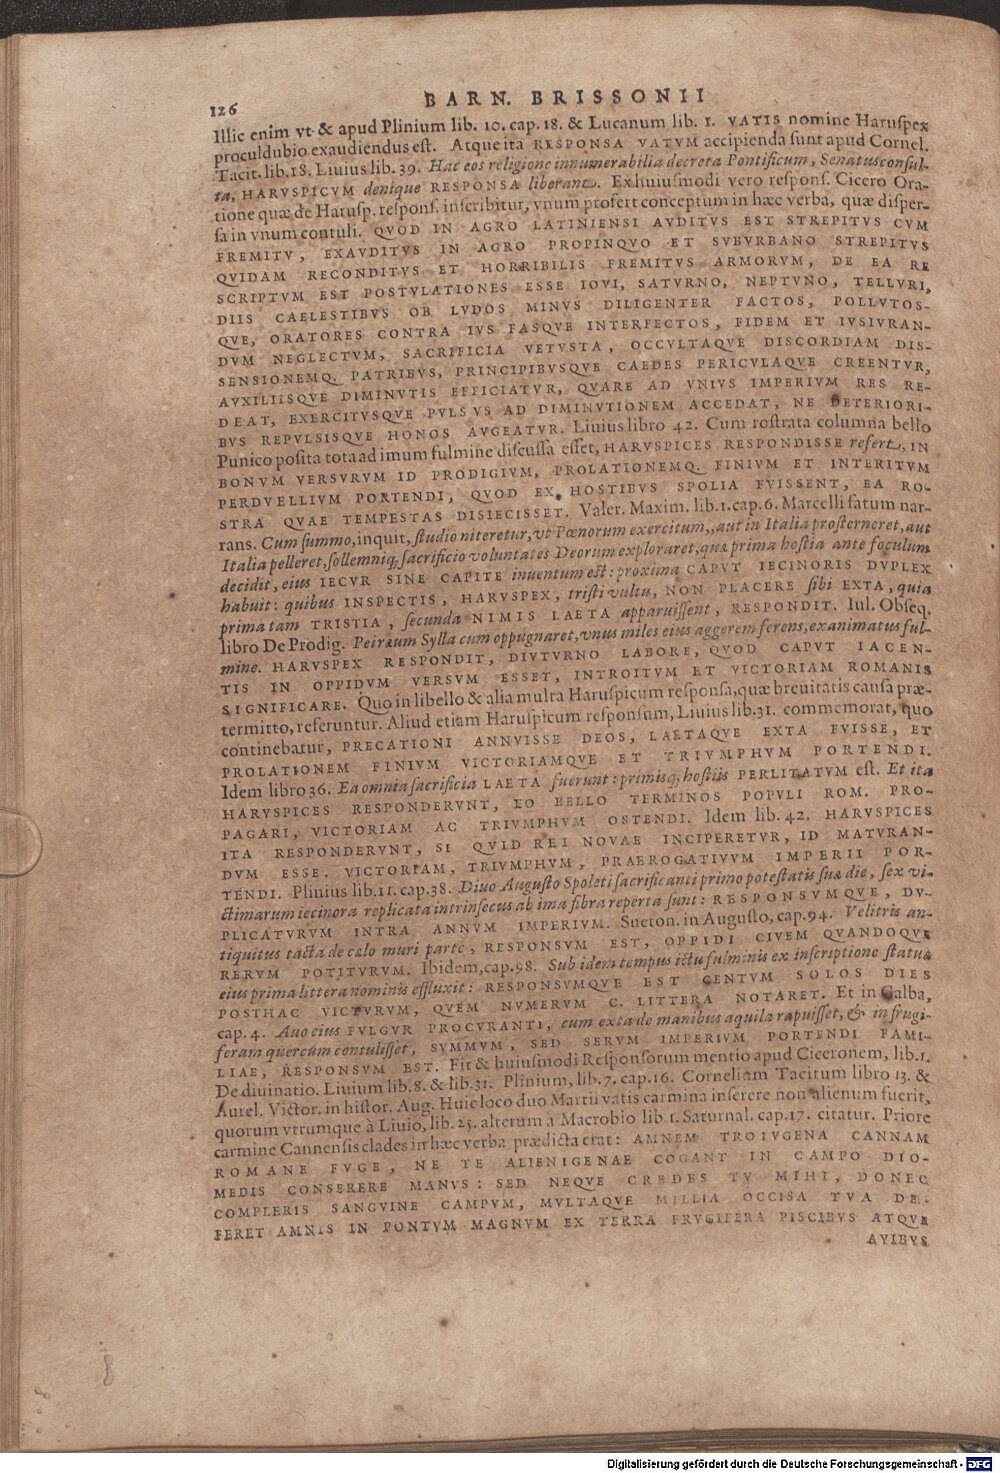 126
BARN. BRISSONII
Illic enim vt & apud Plinium lib. 10. cap. 18. & Lucanum lib. 1. VATIS nomine Haruspex
proculdubio exaudiendus est. Atque ita RESPONSA VATVM accipienda sunt apud Cornel.
Tacit. lib. 18. Liuius lib. 39. Hac eos religione innumerabilia decreta Pontificum, Senatusconsul-
ta, HARVSPICVM denique RESPONSA liberant. Ex huiusmodi vero respons. Cicero Ora-
tione quæ de Harusp. respons. inscribitur, vnum profert conceptum in hæc verba, quæ disper-
sa in vnum contuli. QVOD IN AGRO LATINIENSI AVDITVS EST STREPITVS CVM
FREMITV, EXAVDITVS IN AGRO PROPINQVO ET SVBVRBANO STREPITVS
QVIDAM RECONDITVS ET HORRIBILIS FREMITVS ARMORVM, DE EA RE
SCRIPTVM EST POSTVLATIONES ESSE IOVI, SATVRNO, NEPTVNO, TELLVRI,
DIIS CAELESTIBVS OB LVDOS MINVS DILIGENTER FACTOS, POLLVTOS-
QVE, ORATORES CONTRA IVS FASQVE INTERFECTOS, FIDEM ET IVSIVRAN-
DVM NEGLECTVM, SACRIFICIA VETVSTA, OCCVLTAQVE DISCORDIAM DIS-
SENSIONEMQ. PATRIBVS, PRINCIPIBVSQVE CAEDES PERICVLAQVE CREENTVR,
AVXILIISQVE DIMINVTIS EFFICIATVR, QVARE AD VNIVS IMPERIVM RES RE-
DEAT, EXERCITVSQVE PVLSVS AD DIMINVTIONEM ACCEDAT, NE DETERIORI-
BVS REPVLSISQVE HONOS AVGEATVR. Liuius libro 42. Cum rostrata columna bello
Punico posita tota ad imum fulmine discussa esset, HARVSPICES RESPONDISSE refert, IN
BONVM VERSVRVM ID PRODIGIVM, PROLATIONEMQ. FINIVM ET INTERITVM
PERDVELLIVM PORTENDI, QVOD EX HOSTIBVS SPOLIA FVISSENT, EA RO-
STRA QVAE TEMPESTAS DISIECISSET. Valer. Maxim. lib. 1. cap. 6. Marcelli fatum nar-
rans. Cum summo, inquit, studio niteretur, vt Pœnorum exercitum,, aut in Italia prosterneret, aut
Italia pelleret, sollemniq; sacrificio voluntates Deorum exploraret, quæ prima hostia ante foculum
decidit, eius IECVR SINE CAPITE inuentum est: proxima CAPVT IECINORIS DVPLEX
habuit: quibus INSPECTIS, HARVSPEX, tristi vultu, NON PLACERE sibi EXTA, quia
prima tam TRISTIA, secunda NIMIS LAETA apparuissent, RESPONDIT. Iul. Obseq.
libro De Prodig. Peiræum Sylla cum oppugnaret, vnus miles eius aggerem ferens, exanimatus ful-
mine. HARVSPEX RESPONDIT, DIVTVRNO LABORE, QVOD CAPVT IACEN-
TIS IN OPPIDVM VERSVM ESSET, INTROITVM ET VICTORIAM ROMANIS
SIGNIFICARE. Quo in libello & alia multa Haruspicum responsa, quæ breuitatis causa præ-
termitto, referuntur. Aliud etiam Haruspicum responsum, Liuius lib. 31. commemorat, quo
continebatur, PRECATIONI ANNVISSE DEOS, LAETAQVE EXTA FVISSE, ET
PROLATIONEM FINIVM VICTORIAMQVE ET TRIVMPHVM PORTENDI.
Idem libro 36. Ea omnia sacrificia LAETA fuerunt: primisq; hostiis PERLITATVM est. Et ita
HARVSPICES RESPONDERVNT, EO BELLO TERMINOS POPVLI ROM. PRO-
PAGARI, VICTORIAM AC TRIVMPHVM OSTENDI. Idem lib. 42. HARVSPICES
ITA RESPONDERVNT, SI QVID REI NOVAE INCIPERETVR, ID MATVRAN-
DVM ESSE. VICTORIAM, TRIVMPHVM, PRAEROGATIVVM IMPERII POR-
TENDI. Plinius lib. 11. cap. 38. Diuo Augusto Spoleti sacrificanti primo potestatis suæ die, sex vi-
ctimarum iecinora replicata intrinsecus ab ima fibra reperta sunt: RESPONSVMQVE, DV-
PLICATVRVM INTRA ANNVM IMPERIVM. Sueton. in Augusto, cap. 94. Velitris an-
tiquitus tacta de cælo muri parte, RESPONSVM EST, OPPIDI CIVEM QVANDOQVE
RERVM POTITVRVM. Ibidem, cap. 98. Sub idem tempus ictu fulminis ex inscriptione statuæ
eius prima littera nominis effluxit: RESPONSVMQVE EST CENTVM SOLOS DIES
POSTHAC VICTVRVM, QVEM NVMERVM C. LITTERA NOTARET. Et in Galba,
cap. 4. Auo eius FVLGVR PROCVRANTI, cum exta de manibus aquila rapuisset, & in frugi-
feram quercum contulisset, SVMMVM, SED SERVM IMPERIVM PORTENDI FAMI-
LIAE, RESPONSVM EST. Fit & huiusmodi Responsorum mentio apud Ciceronem, lib. 1.
De diuinatio. Liuium lib. 8. & lib. 31. Plinium, lib. 7. cap. 16. Corneliam Tacitum libro 13. &
Aurel. Victor. in histor. Aug. Huic loco duo Martii vatis carmina inserere non alienum fuerit,
quorum vtrumque à Liuio, lib. 25. alterum à Macrobio lib. 1. Saturnal. cap. 17. citatur. Priore
carmine Cannensis clades in hæc verba prædicta erat: AMNEM TROIVGENA CANNAM
ROMANE FVGE, NE TE ALIENIGENAE COGANT IN CAMPO DIO-
MEDIS CONSERERE MANVS: SED NEQVE CREDES TV MIHI, DONEC
COMPLERIS SANGVINE CAMPVM, MVLTAQVE MILLIA OCCISA TVA DE-
FERET AMNIS IN PONTVM MAGNVM EX TERRA FRVGIFERA PISCIBVS ATQVE
AVIBVS
Digitalisierung gefördert durch die Deutsche Forschungsgemeinschaft - DFG